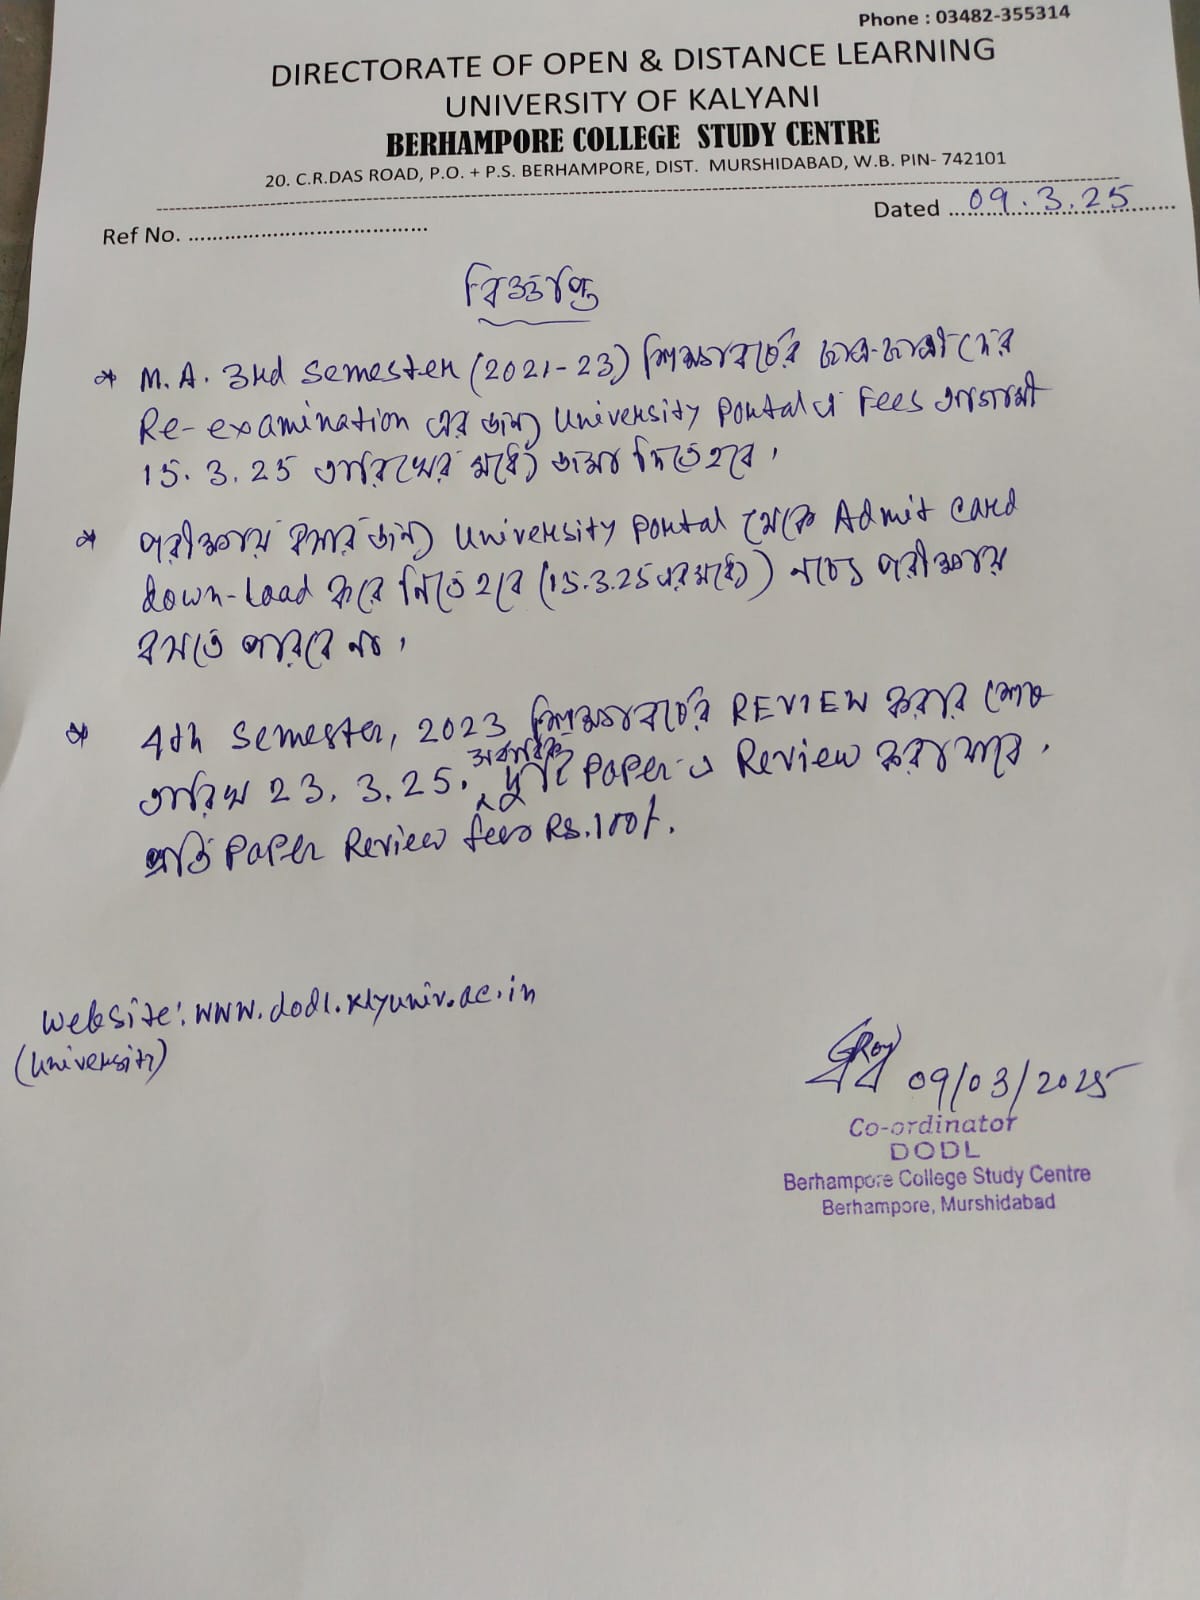 Phone : 03482-355314
DIRECTORATE OF OPEN & DISTANCE LEARNING
UNIVERSITY OF KALYANI
BERHAMPORE COLLEGE STUDY CENTRE
20. C.R.DAS ROAD, P.O. + P.S. BERHAMPORE, DIST. MURSHIDABAD, W.B. PIN- 742101
Ref No. ........................................ Dated 09.3.25
বিজ্ঞপ্তি
* M.A. 3rd semester (2021-23) শিক্ষাবর্ষের ছাত্র-ছাত্রীদের
Re-examination এর জন্য University Portal এ Fees আগামী
15.3.25 তারিখের মধ্যে জমা দিতে হবে।
* পরীক্ষায় বসার জন্য University Portal থেকে Admit Card
down-load করে নিতে হবে (15.3.25 এর মধ্যে) নচেৎ পরীক্ষায়
বসতে পারবে না।
* 4th semester, 2023 শিক্ষাবর্ষের REVIEW করার শেষ
তারিখ 23.3.25. দুটি Paper-এ Review করা যাবে।
প্রতি Paper Review fees Rs.100/-.
Website: www.dodl.klyuniv.ac.in
(University)
GRoy
09/03/2025
Co-ordinator
DODL
Berhampore College Study Centre
Berhampore, Murshidabad